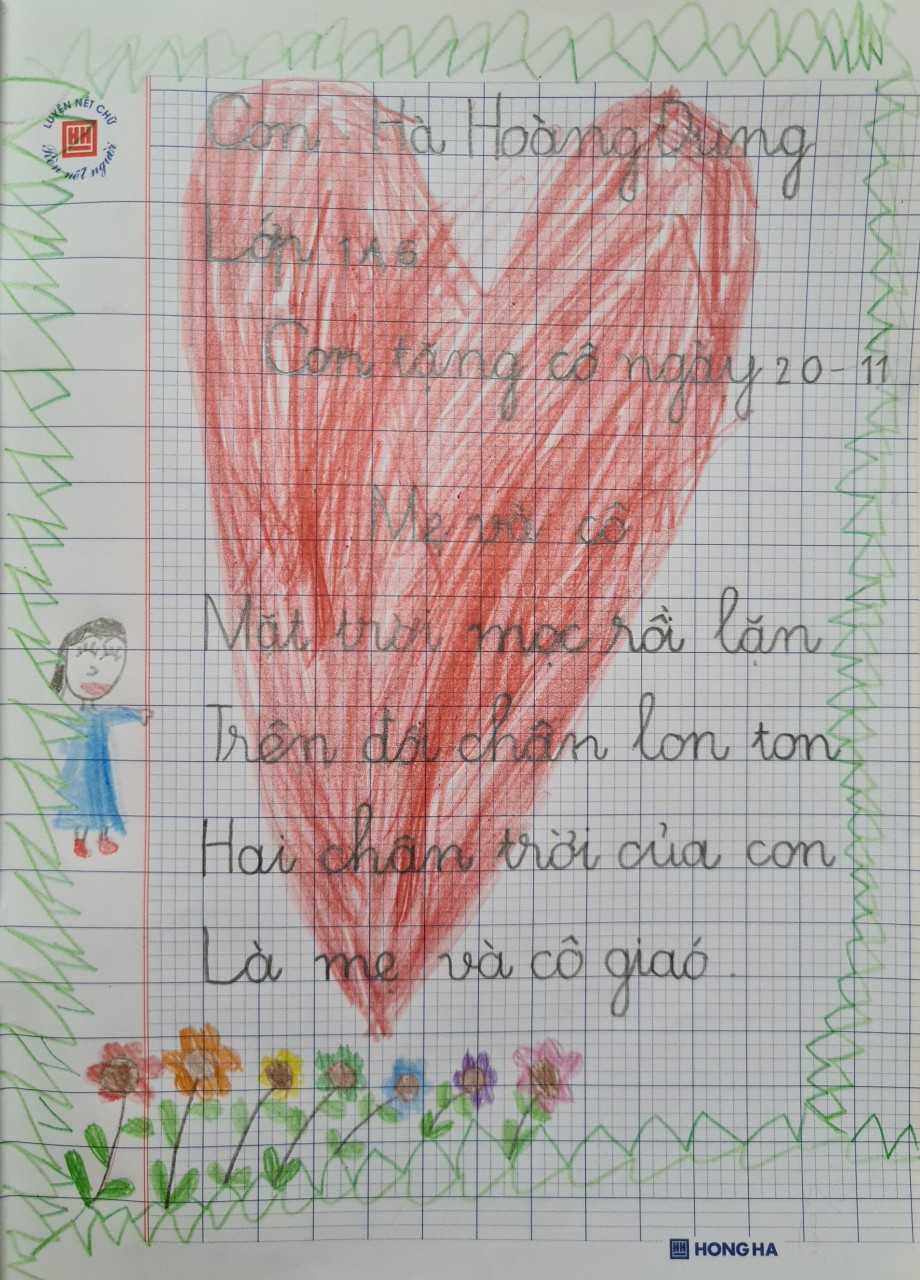 LUYỆN NÉT CHỮ
HH
Rèn nết người
Con Hà Hoàng Dung
Lớp 1A6
Con tặng cô ngày 20-11
Mẹ và cô
Mặt trời mọc rồi lặn
Trên đôi chân lon ton
Hai chân trời của con
Là mẹ và cô giaó.
HH HONG HA